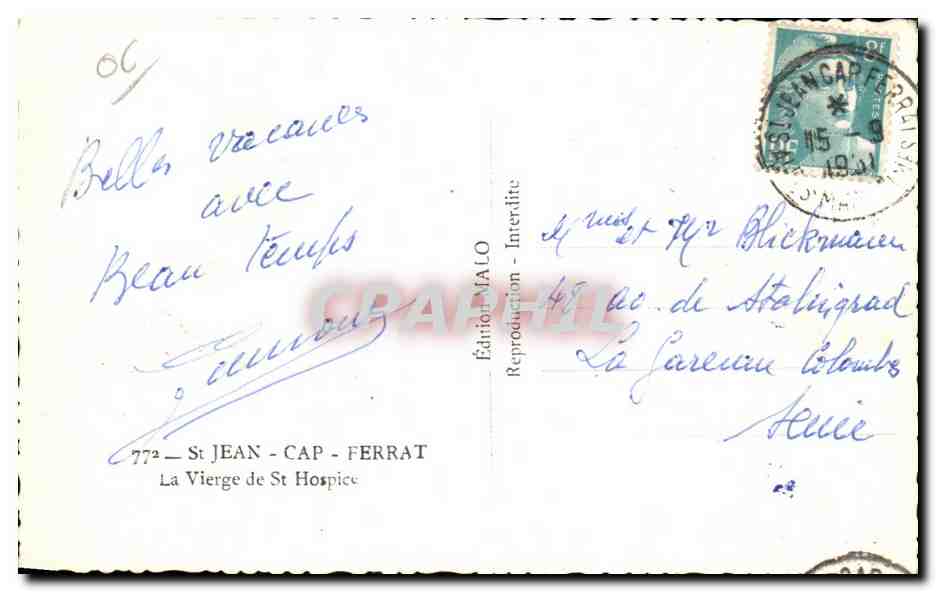 06
Belles vacances
avec
Beau temps
772 — St JEAN - CAP - FERRAT
La Vierge de St Hospice
Édition MALO
Reproduction - Interdite
8F
POSTES
St JEAN CAP FERRAT
*
15 - 9
1951
Mr Blickmann
45 av. de Stalingrad
La Garenne Colombes
Seine
CPAPHIL